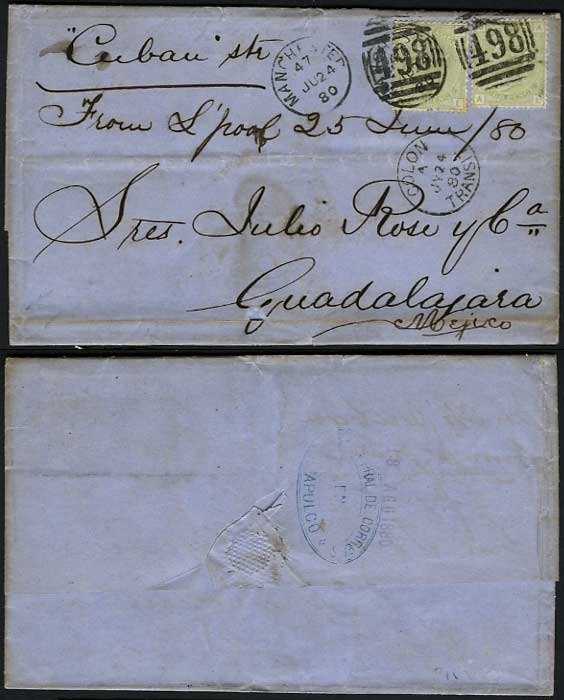 "Cuban" str
From L'pool 25 June/80
Sres. Julio Rose y Ca
Guadalajara
Mejico
MANCHESTER
47
JU 24
80
498
498
COLON
A
JY 24
80
TRANSIT
A
L
RAL DE CORREO
APULCO
8 AGO 1880